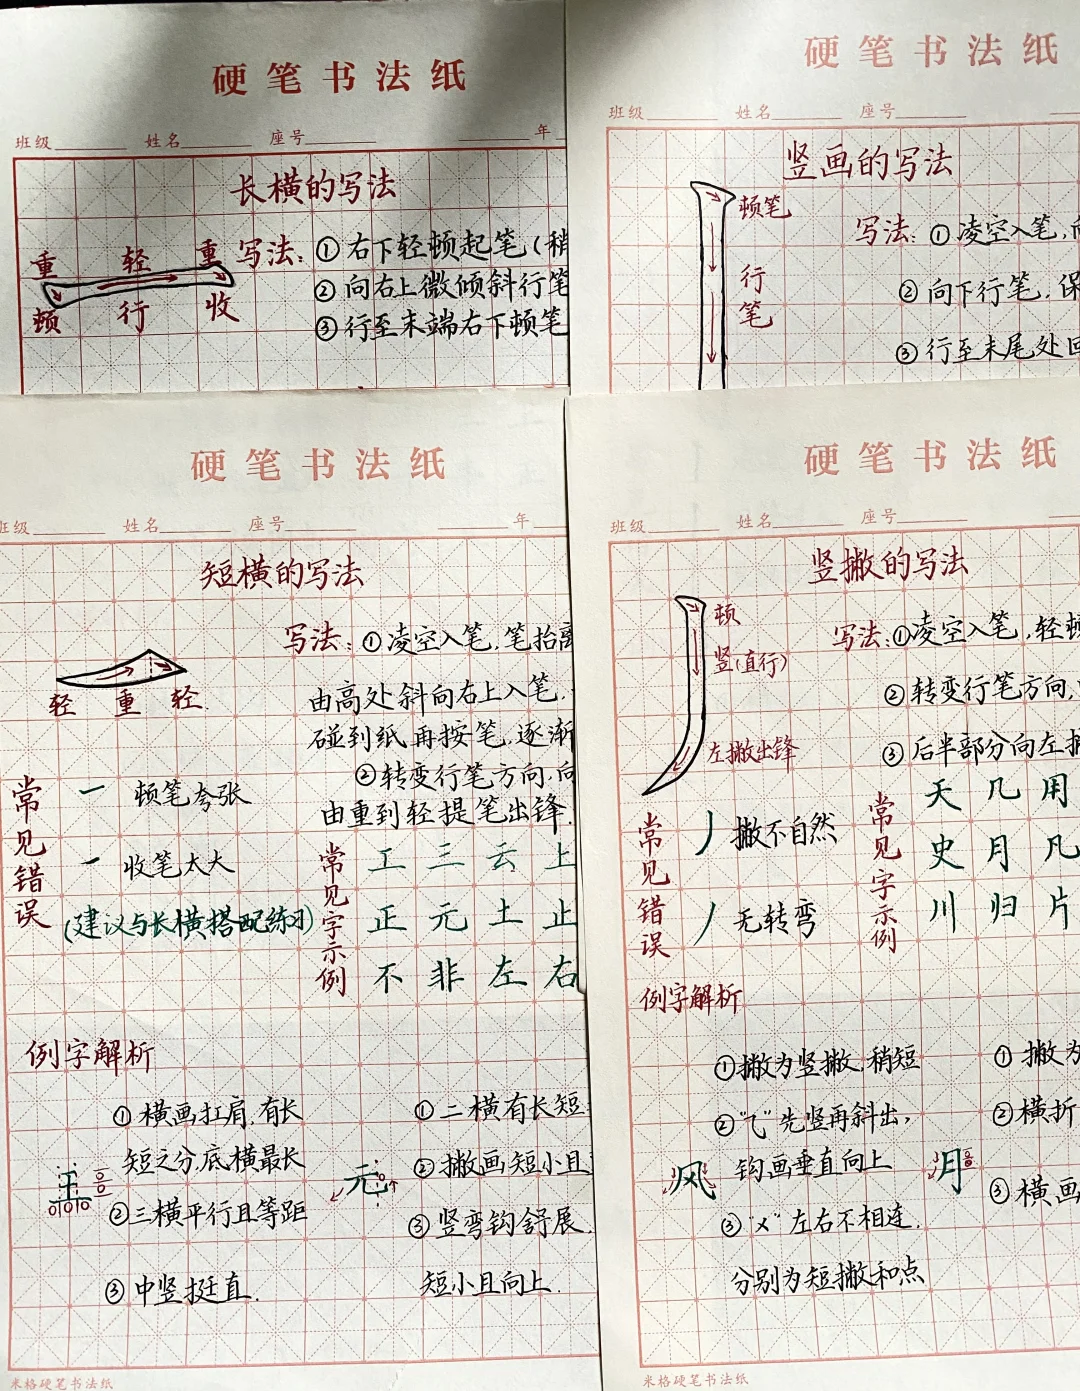 硬笔书法纸
班级 姓名 座号 年
长横的写法
重 轻 重
顿 行 收
写法:①右下轻顿起笔(稍
②向右上微倾斜行笔
③行至末端右下顿笔
硬笔书法纸
班级 姓名 座号
竖画的写法
顿笔
行笔
写法:①凌空入笔,
②向下行笔,保
③行至末尾处回
硬笔书法纸
班级 姓名 座号 年
短横的写法
轻 重 轻
写法:①凌空入笔,笔抬离
由高处斜向右上入笔.
碰到纸再按笔,逐渐
②转变行笔方向,向
由重到轻提笔出锋.
常见错误
顿笔夸张
收笔太大
(建议与长横搭配练习)
常见字示例
工 三 云 上
正 元 土 止
不 非 左 右
例字解析
王
①横画扛肩,有长
短之分,底横最长
②三横平行且等距
③中竖挺直.
元
①二横有长短
②撇画短小且
③竖弯钩舒展.
短小且向上.
米格硬笔书法纸
硬笔书法纸
班级 姓名 座号
竖撇的写法
顿
竖(直行)
左撇出锋
写法:①凌空入笔,轻顿
②转变行笔方向,
③后半部分向左撇
常见错误
撇不自然
无转弯
常见字示例
天 几 用
史 月 凡
川 归 片
例字解析
风
①撇为竖撇,稍短
②"乁"先竖再斜出,
钩画垂直向上
③"㐅"左右不相连.
分别为短撇和点
月
①撇为
②横折
③横画
米格硬笔书法纸